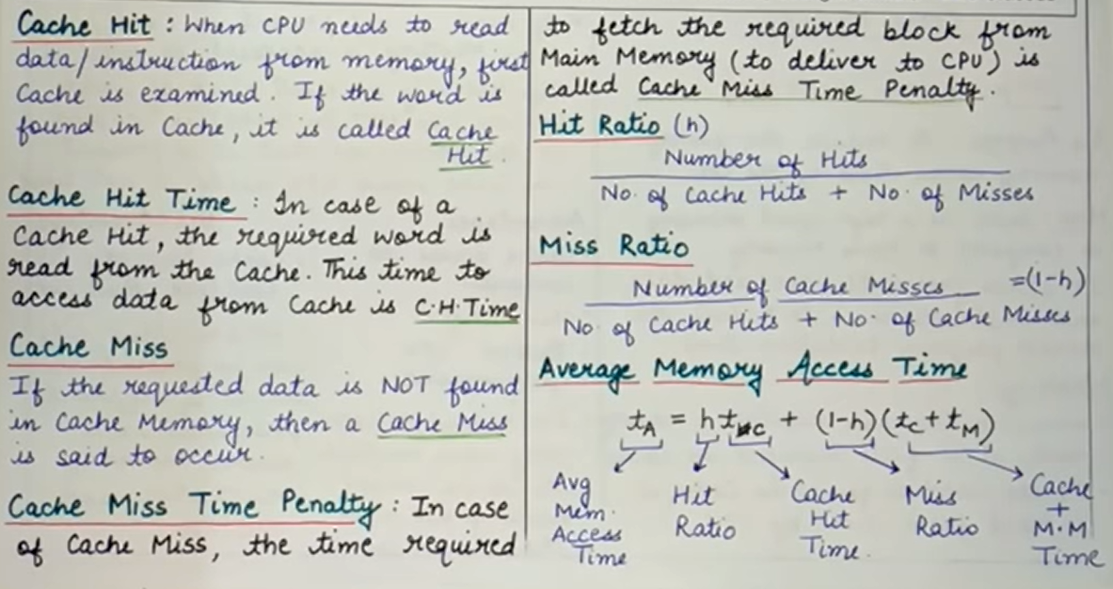 Cache Hit : When CPU needs to read
data/instruction from memory, first
Cache is examined. If the word is
found in Cache, it is called Cache
Hit.
Cache Hit Time : In case of a
Cache Hit, the required word is
read from the Cache. This time to
access data from Cache is C.H.Time
Cache Miss
If the requested data is NOT found
in Cache Memory, then a Cache Miss
is said to occur.
Cache Miss Time Penalty : In case
of Cache Miss, the time required
to fetch the required block from
Main Memory (to deliver to CPU) is
called Cache Miss Time Penalty.
Hit Ratio (h)
Number of Hits
No. of Cache Hits + No. of Misses
Miss Ratio
Number of Cache Misses =(1-h)
No. of Cache Hits + No. of Cache Misses
Average Memory Access Time
tA = h tC + (1-h)(tC + tM)
Avg
Mem.
Access
Time
Hit
Ratio
Cache
Hit
Time.
Miss
Ratio
Cache
+
M.M
Time